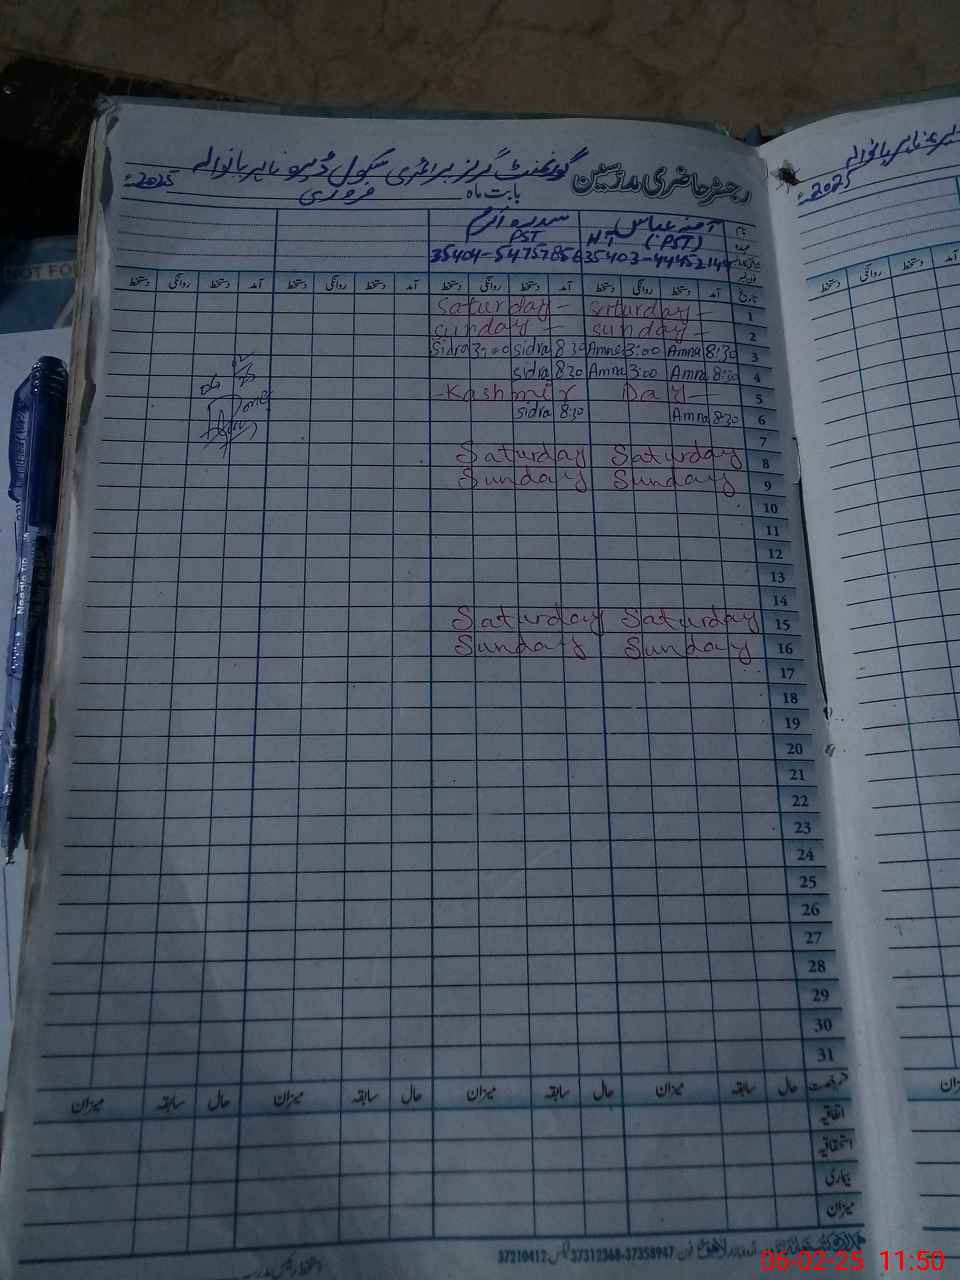 رجسٹر حاضری مدرسین گورنمنٹ گرلز پرائمری سکول
بابت ماہ فروری 2025ء
نام آمنہ عباس سدرہ اکرم
(PST) PST
35403-44452144 35404-54757856
تاریخ آمد دستخط روانگی دستخط آمد دستخط روانگی دستخط آمد دستخط روانگی دستخط آمد دستخط روانگی دستخط
1 saturday - saturday -
2 sunday - sunday -
3 8:30 Amna 3:00 Amna 8:30 sidra 3:00 Sidra
4 8:30 Amna 3:00 Amna 8:30 sidra
5 -Kashmir Day-
6 8:30 Amna 8:30 sidra
7
8 Saturday Saturday
9 Sunday Sunday
10
11
12
13
14
15 Saturday Saturday
16 Sunday Sunday
17
18
19
20
21
22
23
24
25
26
27
28
29
30
31
رخصت حال سابقہ میزان حال سابقہ میزان حال سابقہ میزان حال سابقہ میزان
اتفاقیہ
استحقاقیہ
بیماری
میزان
فون 37312368-37358947 فیکس 37210412
2025ء
دستخط روانگی دستخط آمد
NOT FO
Needle tip
06-02-25 11:50